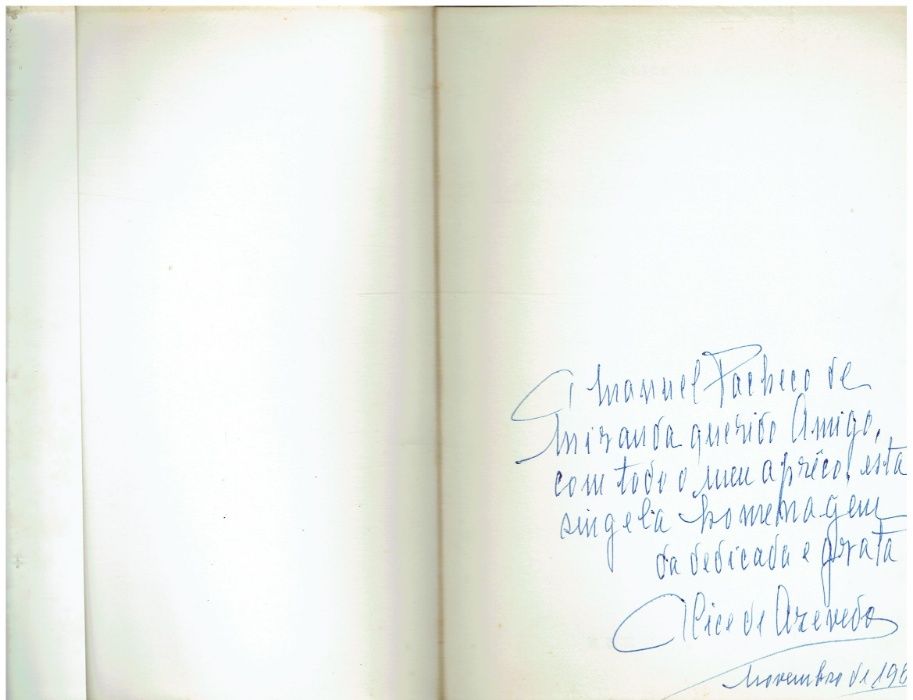 A Manuel Pacheco de
Miranda querido Amigo,
com todo o meu aprêço, esta
singela homenagem
da dedicada e grata
Alice de Azevedo
Novembro de 196